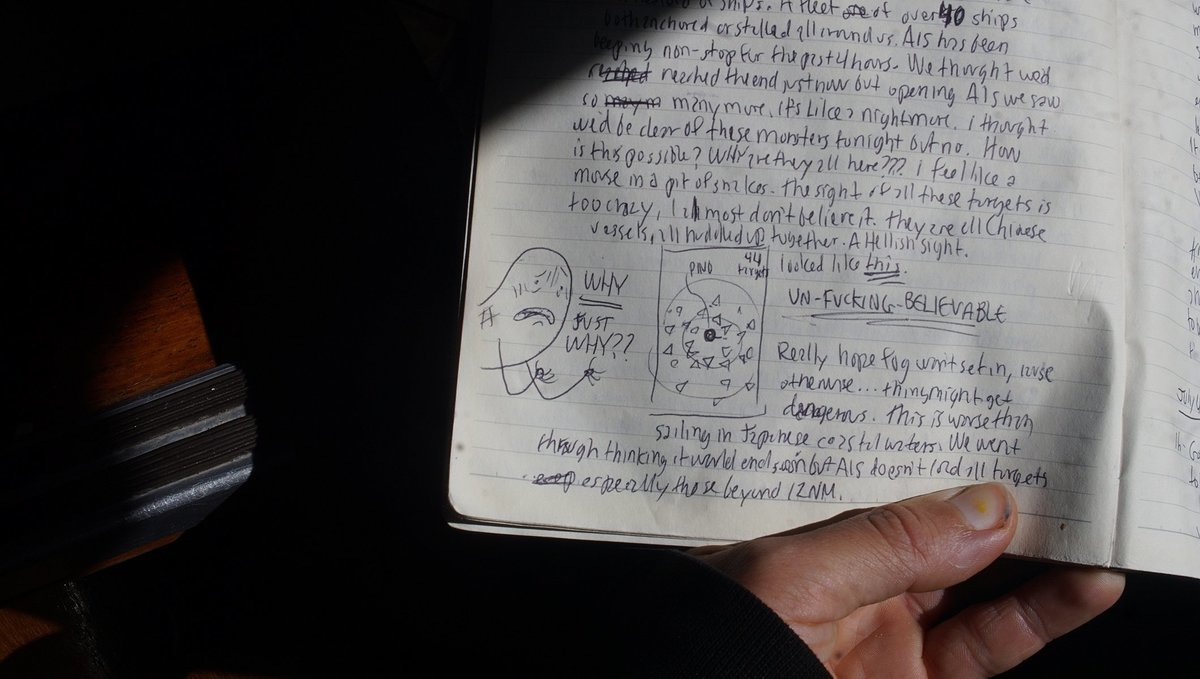 of ships. A fleet one of over 40 ships
both anchored or stalled all around us. AIS has been
beeping non-stop for the past 4 hours. We thought we'd
reached reached the end just now but opening AIS we saw
so many more. it's Like a nightmare. i thought
we'd be clear of these monsters tonight but no. How
is this possible? WHY are they all here??? i feel like a
mouse in a pit of snakes. the sight of all these targets is
too crazy, I almost don't believe it. they are all Chinese
vessels, all huddled up together. A Hellish sight.
looked like this.
44
targets
PINO
WHY
JUST
WHY??
UN-FUCKING-BELIEVABLE
Really hope fog won't set in, cause
otherwise... thing might get
dangerous. this is worse than
sailing in Japanese coastal waters. We went
through thinking it would end soon but AIS doesn't load all targets
especially those beyond 12NM.
July